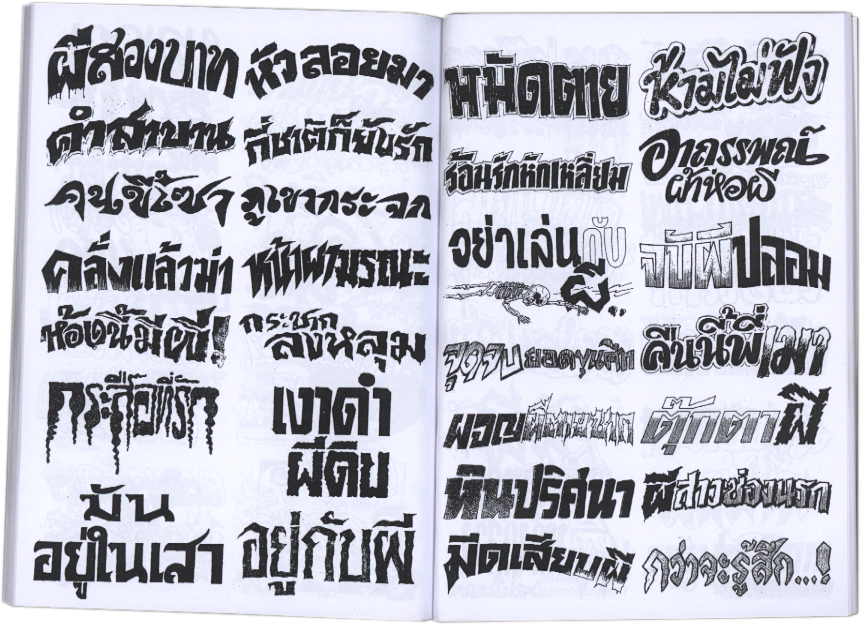 ผีสองบาท
คำสาบาน
คนขี่โซ่
คลั่งแล้วฆ่า
ห้องนี้มีผี!
กระสือที่รัก
มัน
อยู่ในเสา
หัวลอยมา
กี่ชาติก็ยังรัก
ภูเขากระจก
หน้าผามรณะ
กระชาก
ลงหลุม
เงาดำ
ผีดิบ
อยู่กับผี
หมัดตาย
ร้อนรักหักเหลี่ยม
อย่าเล่นกับ
ผี
จูดจบยอดขุนศึก
ผจญผีตายซาก
หินปริศนา
มีดเสียบผี
ห้ามไม่ฟัง
อาถรรพณ์
ผ้าห่อผี
จับผีปลอม
คืนนี้พี่เมา
ตุ๊กตาผี
ผีสาวซ่องนรก
กว่าจะรู้สึก...!